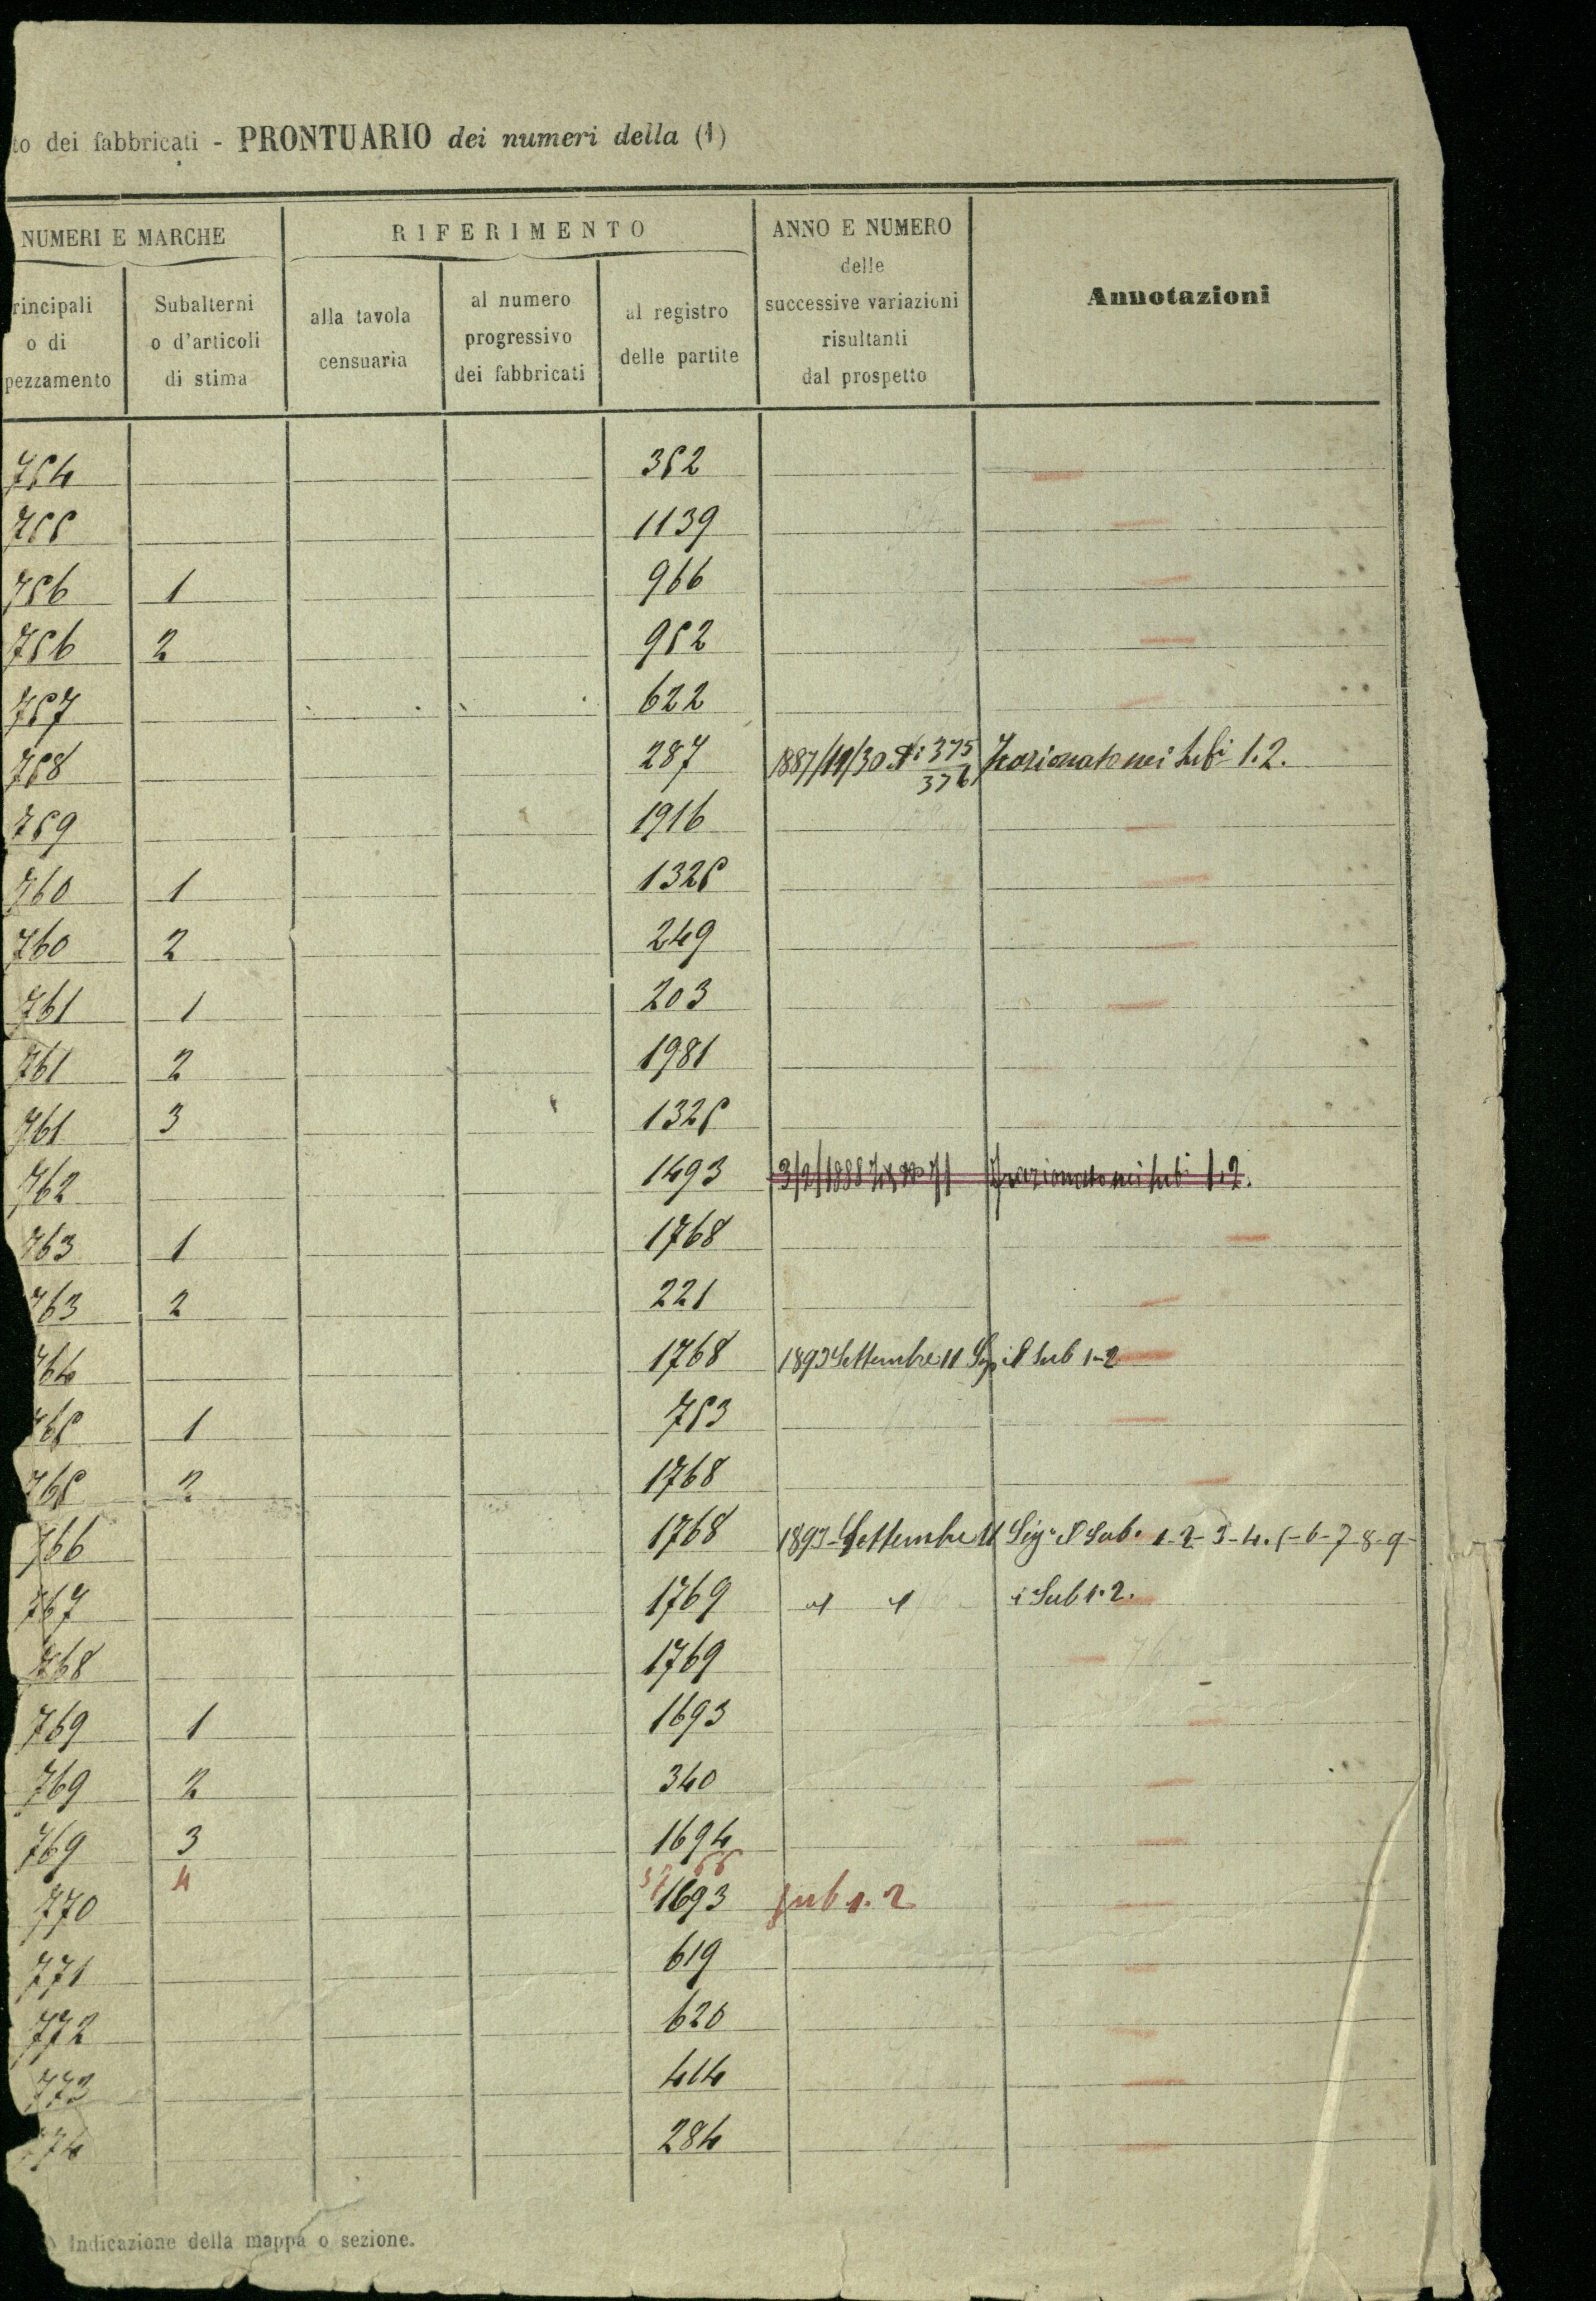 to dei fabbricati - PRONTUARIO dei numeri della (1)
NUMERI E MARCHE RIFERIMENTO ANNO E NUMERO delle successive variazioni risultanti dal prospetto Annotazioni
rincipali o di pezzamento Subalterni o d'articoli di stima alla tavola censuaria al numero progressivo dei fabbricati al registro delle partite
754 352
755 1139
756 1 966
756 2 952
757 622
758 287 1887/11/30 Ni 375 376 Frazionato nei subi 1.2.
759 1916
760 1 1325
760 2 249
761 1 203
761 2 1981
761 3 1325
762 1493 3/2/1888 71 Frazionato nei subi 1.2.
763 1 1768
763 2 221
764 1768 1893 Settembre 11 il Sub 1-2
765 1 753
765 2 1768
766 1768 1893-Settembre 11 Sub. 1-2-3-4.5-6-7-8-9-
767 1769 i Sub 1.2.
768 1769
769 1 1693
769 2 340
769 3 1694
4 55
770 1693 sub 1.2
771 619
772 620
773 414
774 284
Indicazione della mappa o sezione.